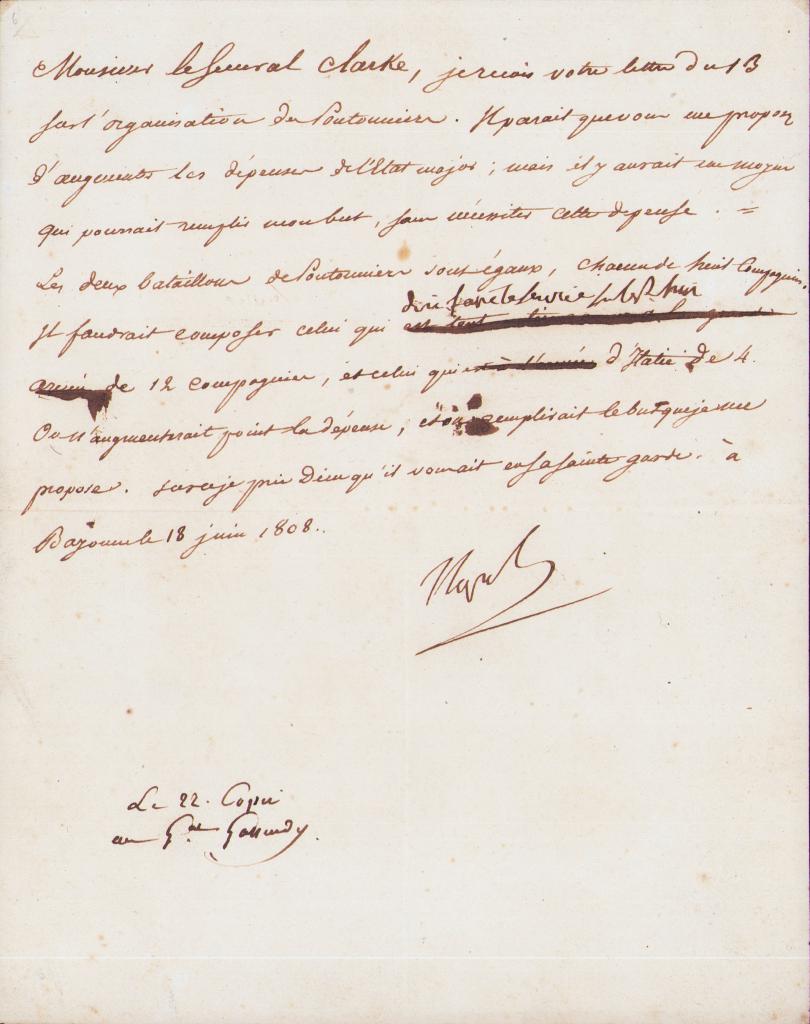 6
Monsieur le General Clarke, je reçois votre lettre du 13
sur l'organisation des Pontonniers. Il parait que vous me proposez
d'augmenter les dépenses de l'Etat major ; mais il y aurait un moyen
qui pourrait remplir mon but, sans nécessiter cette depense. =
Les deux bataillons de Pontonniers sont égaux, chacun de huit Compagnies.
doit faire le service
Il faudrait composer celui qui
armée de 12 compagnies, et celui qui à l'armée d'Italie de 4.
On n'augmenterait point la dépense, et on remplirait le but que je me
propose. Sur ce je prie Dieu qu'il vous ait en sa sainte garde. à
Bayonne le 18 juin 1808.
Nap
Le 22. Copie
au Gal Gassendy.